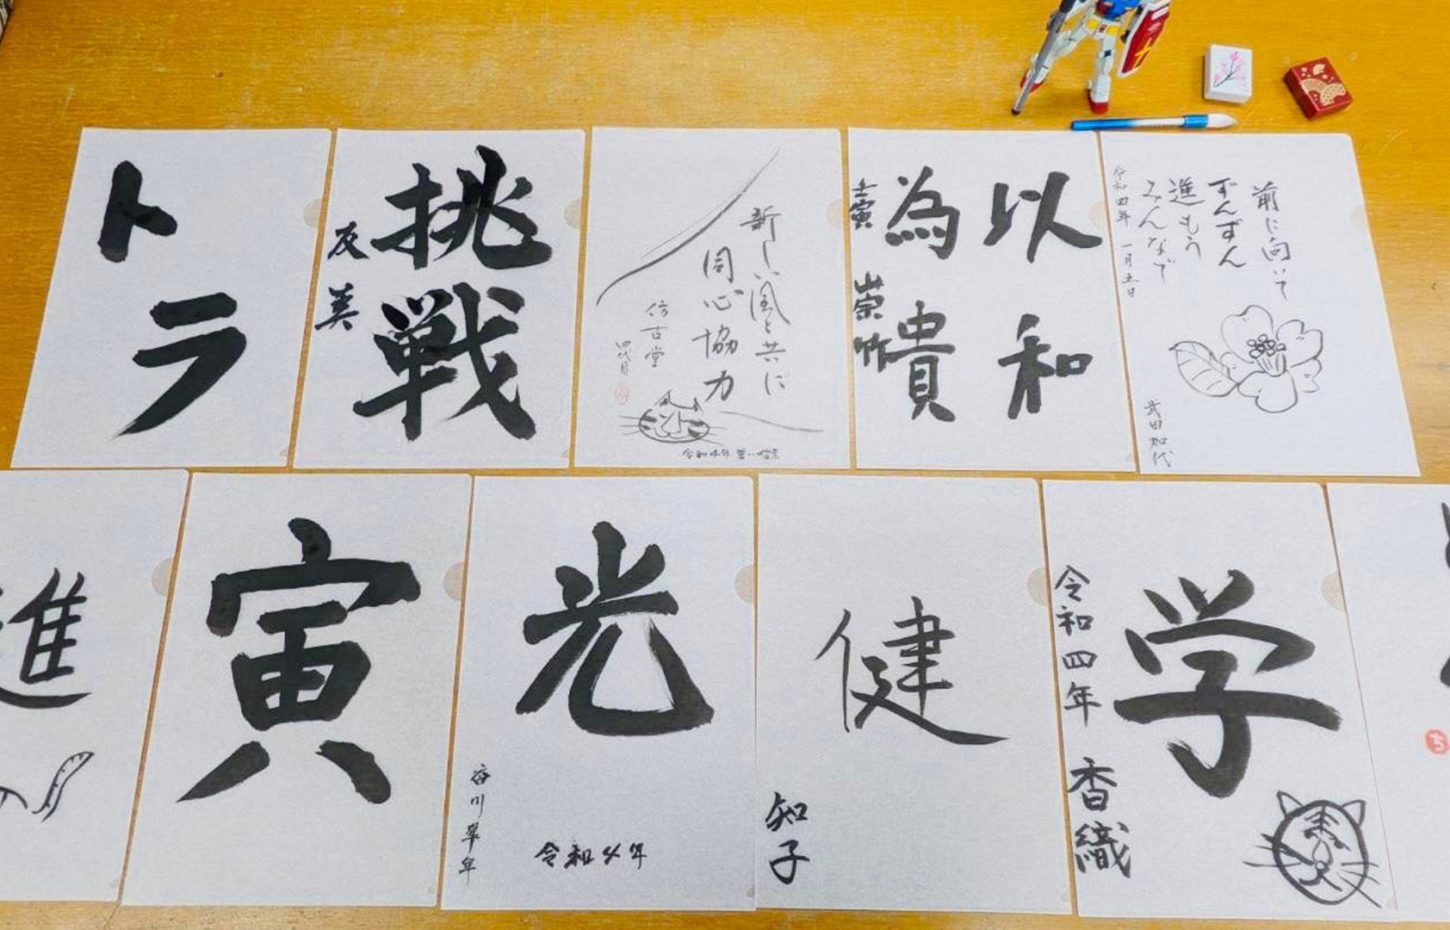 トラ
挑戦
友美
新しい風と共に
同心協力
仿古堂
四代目
令和4年
以和
為貴
壬寅 崇竹
前に向いて
ずんずん
進もう
みんなで
令和四年 一月五日
武田加代
進
寅
光
令和4年
健
知子
学
令和四年 香織